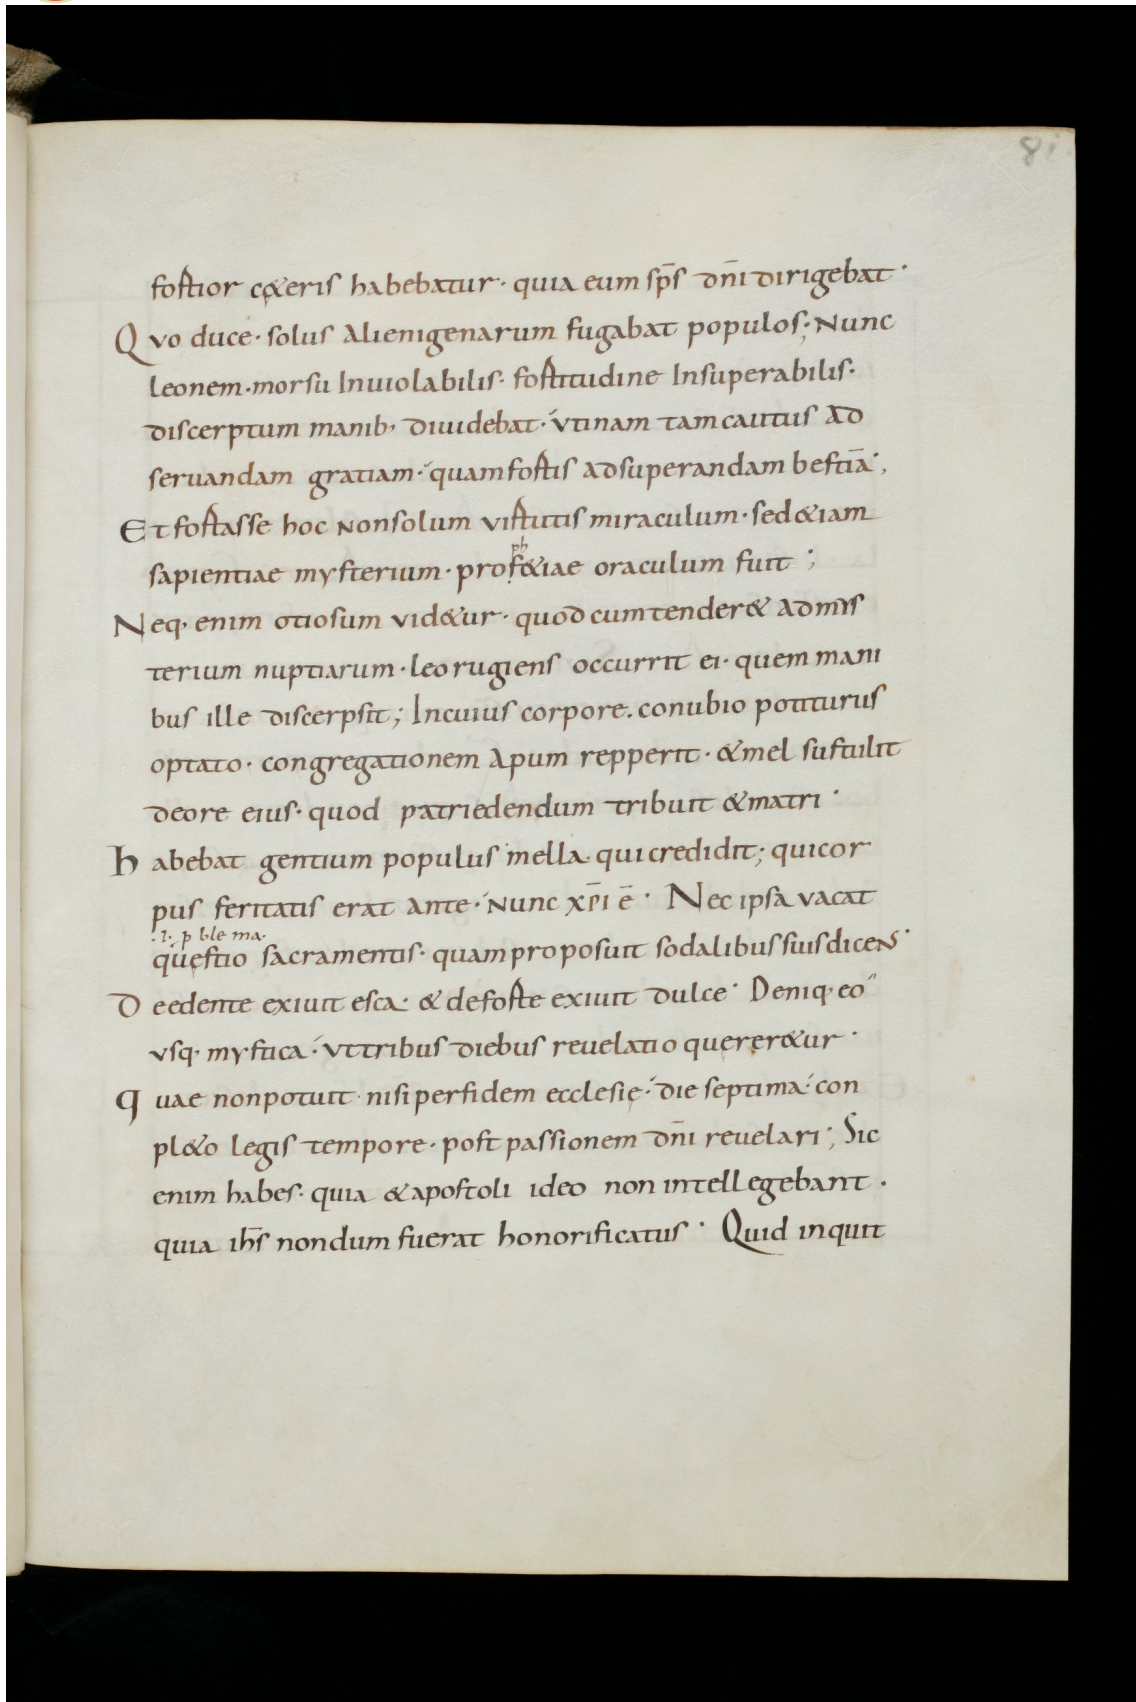 81.
fortior cęteris habebatur· quia eum sp̄s dn̄i dirigebat·
Quo duce· solus alienigenarum fugabat populos; Nunc
leonem· morsu Inuiolabilis· fortitudine Insuperabilis·
discerptum manib; diuidebat· vtinam tam cautus ad
seruandam gratiam· quam fortis ad superandam bestiā·,
Et fortasse hoc non solum virtutis miraculum· sed &iam
ph
sapientiae mysterium· prof&iae oraculum fuit ;
Neq; enim otiosum vid&ur· quod cum tender& ad mys
terium nuptiarum· leo rugiens occurrit ei· quem mani
bus ille discerpsit; Incuius corpore. conubio potiturus
optato· congregationem apum repperit· & mel sustulit
deore eius· quod patri edendum tribuit & matri·
habebat gentium populus mella· qui credidit; qui cor
pus feritatis erat ante· Nunc xp̄i ē· Nec ipsa vacat
.i. p ble ma·
quęstio sacramentis· quam proposuit sodalibus suis dicens·
De edente exiuit esca· & deforte exiuit dulce· Deniq; eo
vsq; mystica· vt tribus diebus reuelatio querer&ur·
quae non potuit· nisi per fidem ecclesię· die septima· con
pl&o legis tempore· post passionem dn̄i reuelari·, Sic
enim habes· quia & apostoli ideo non intellegebant·
quia ih̄s nondum fuerat honorificatus· Quid inquit